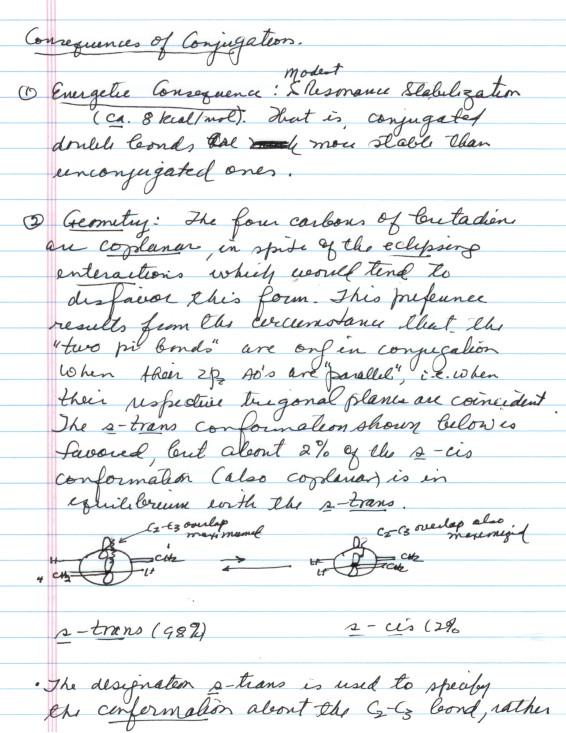 Consequences of Conjugation.
① Energetic Consequence: Modest Resonance Stabilization
(ca. 8 kcal/mol). That is, conjugated
double bonds are more stable than
unconjugated ones.
② Geometry: The four carbons of butadiene
are coplanar, in spite of the eclipsing
interactions which would tend to
disfavor this form. This preference
results from the circumstance that the
"two pi bonds" are only in conjugation
when their 2pz AO's are "parallel", i.e. when
their respective trigonal planes are coincident.
The s-trans conformation shown below is
favored, but about 2% of the s-cis
conformation (also coplanar) is in
equilibrium with the s-trans.
C2-C3 overlap maximized
C2-C3 overlap also maximized
H CH2 H CH2
H H CH2 CH2
s-trans (98%) s-cis (2%
• The designation s-trans is used to specify
the conformation about the C2-C3 bond, rather